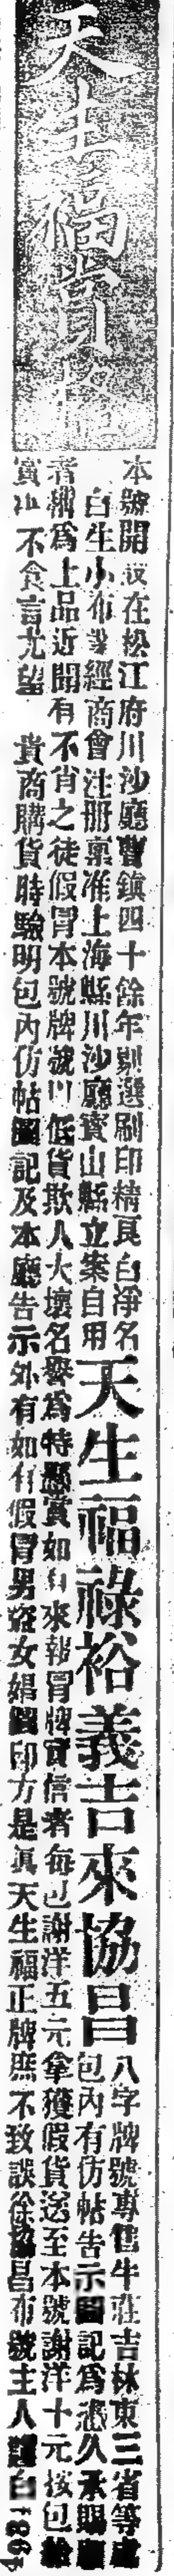 天生福
本號開設在松江府川沙廳曹鎮四十餘年剔選刷印精良白淨名
白生小布等經商會注冊稟准上海縣川沙廳寶山縣立案自用
天生福祿裕義吉來協昌
八字牌號專售牛莊吉林東三省等處
包內有仿帖告示圖記為憑久承賜顧
者稱為上品近聞有不肖之徒假冒本號牌號以低貨欺人大壞名譽為特懸賞如有來報冒牌實信者每包謝洋五元拿獲假貨送至本號謝洋十元按包給
賞決不食言尤望 貴商購貨時驗明包內仿帖圖記及本廳告示外有如有假冒男盜女娼圖印方是真天生福正牌庶不致誤徐協昌布號主人謹白